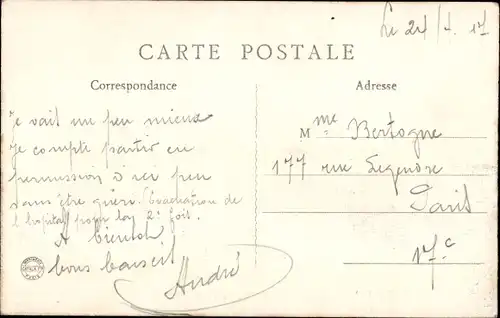 Le 24/4 17
CARTE POSTALE
Correspondance
Adresse
Je vait un peu mieux
Je compte partir en
permission d'ici peu
sans être guéri. Evacuation de
l hopital pour la 2e fois.
A bientot
bons baisers
André
Mme Bertogne
177 rue Legendre
Paris
17e